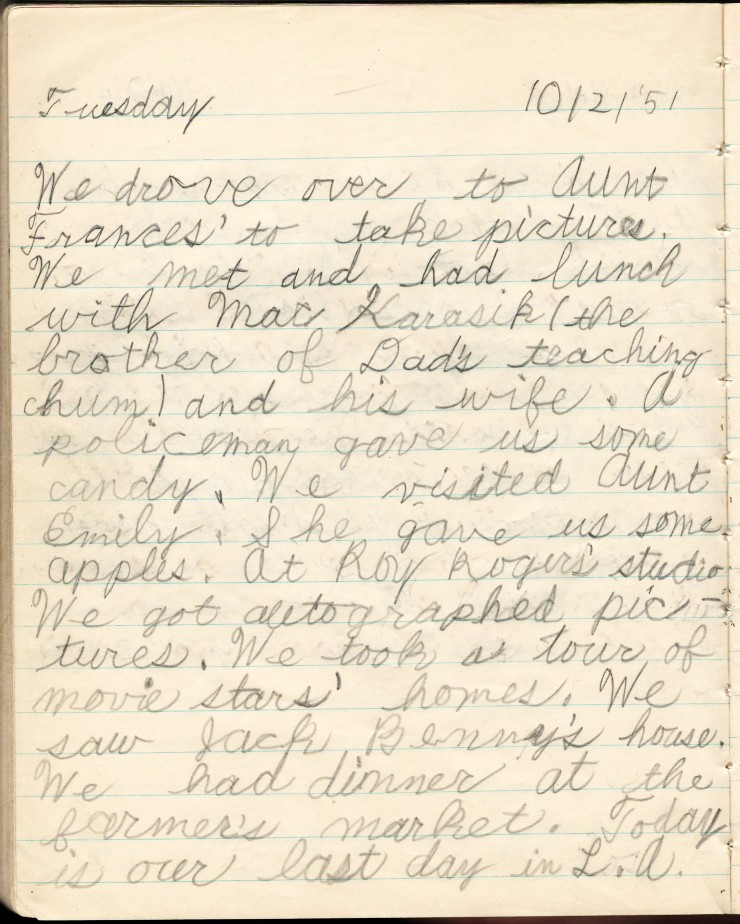 Tuesday 10/2/'51
We drove over to Aunt
Frances' to take pictures.
We met and had lunch
with Mac Karasik (the
brother of Dad's teaching
chum) and his wife. A
policeman gave us some
candy. We visited Aunt
Emily. She gave us some
apples. At Roy Rogers' studio
We got autographed pic-
tures. We took a tour of
movie stars' homes. We
saw Jack Benny's house.
We had dinner at the
farmer's market. Today
is our last day in L.A.